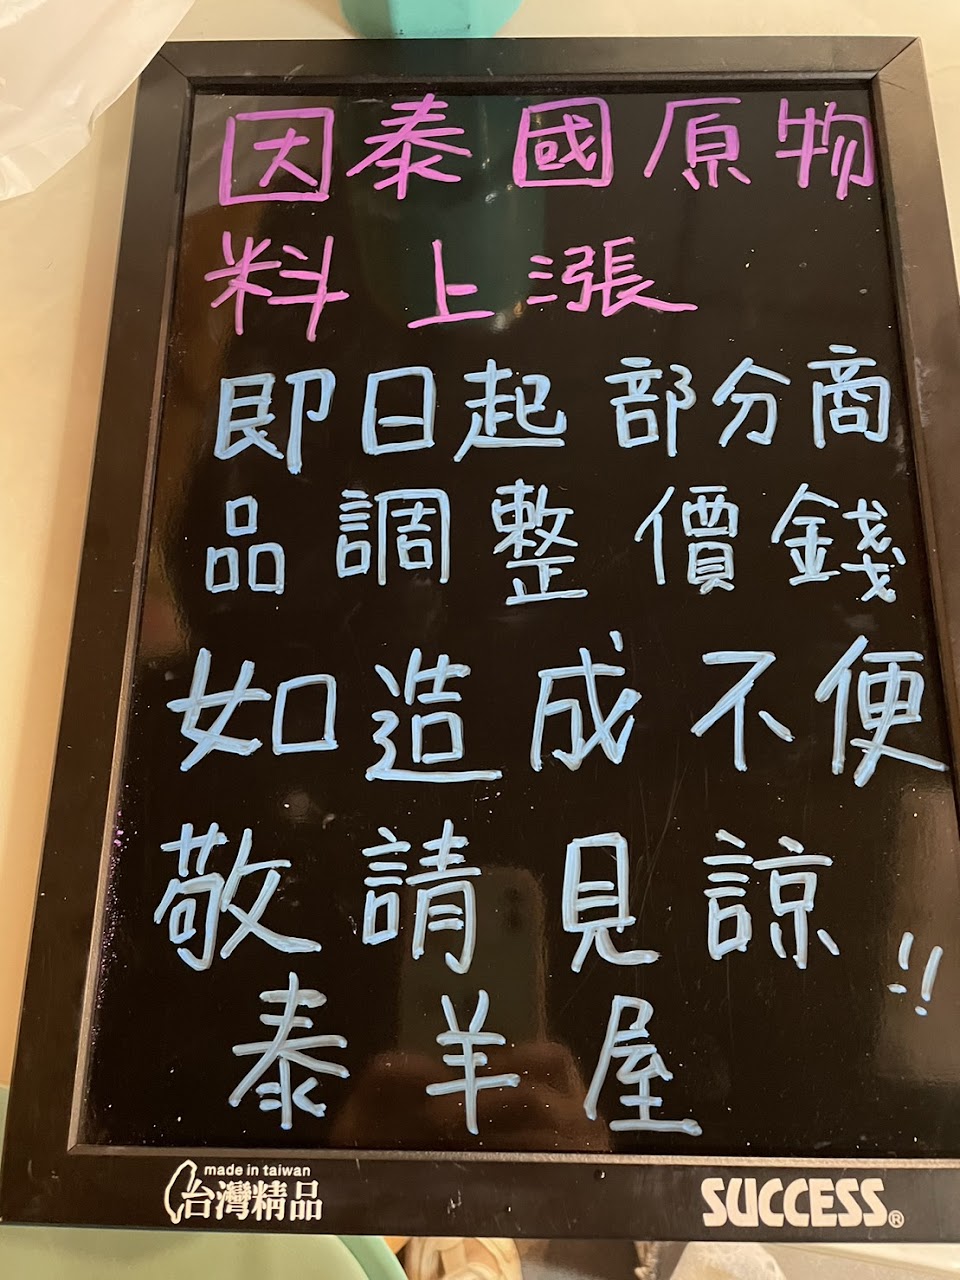 因泰國原物
料上漲
即日起部分商
品調整價錢
如造成不便
敬請見諒!!
泰羊屋
made in taiwan
台灣精品
SUCCESS®